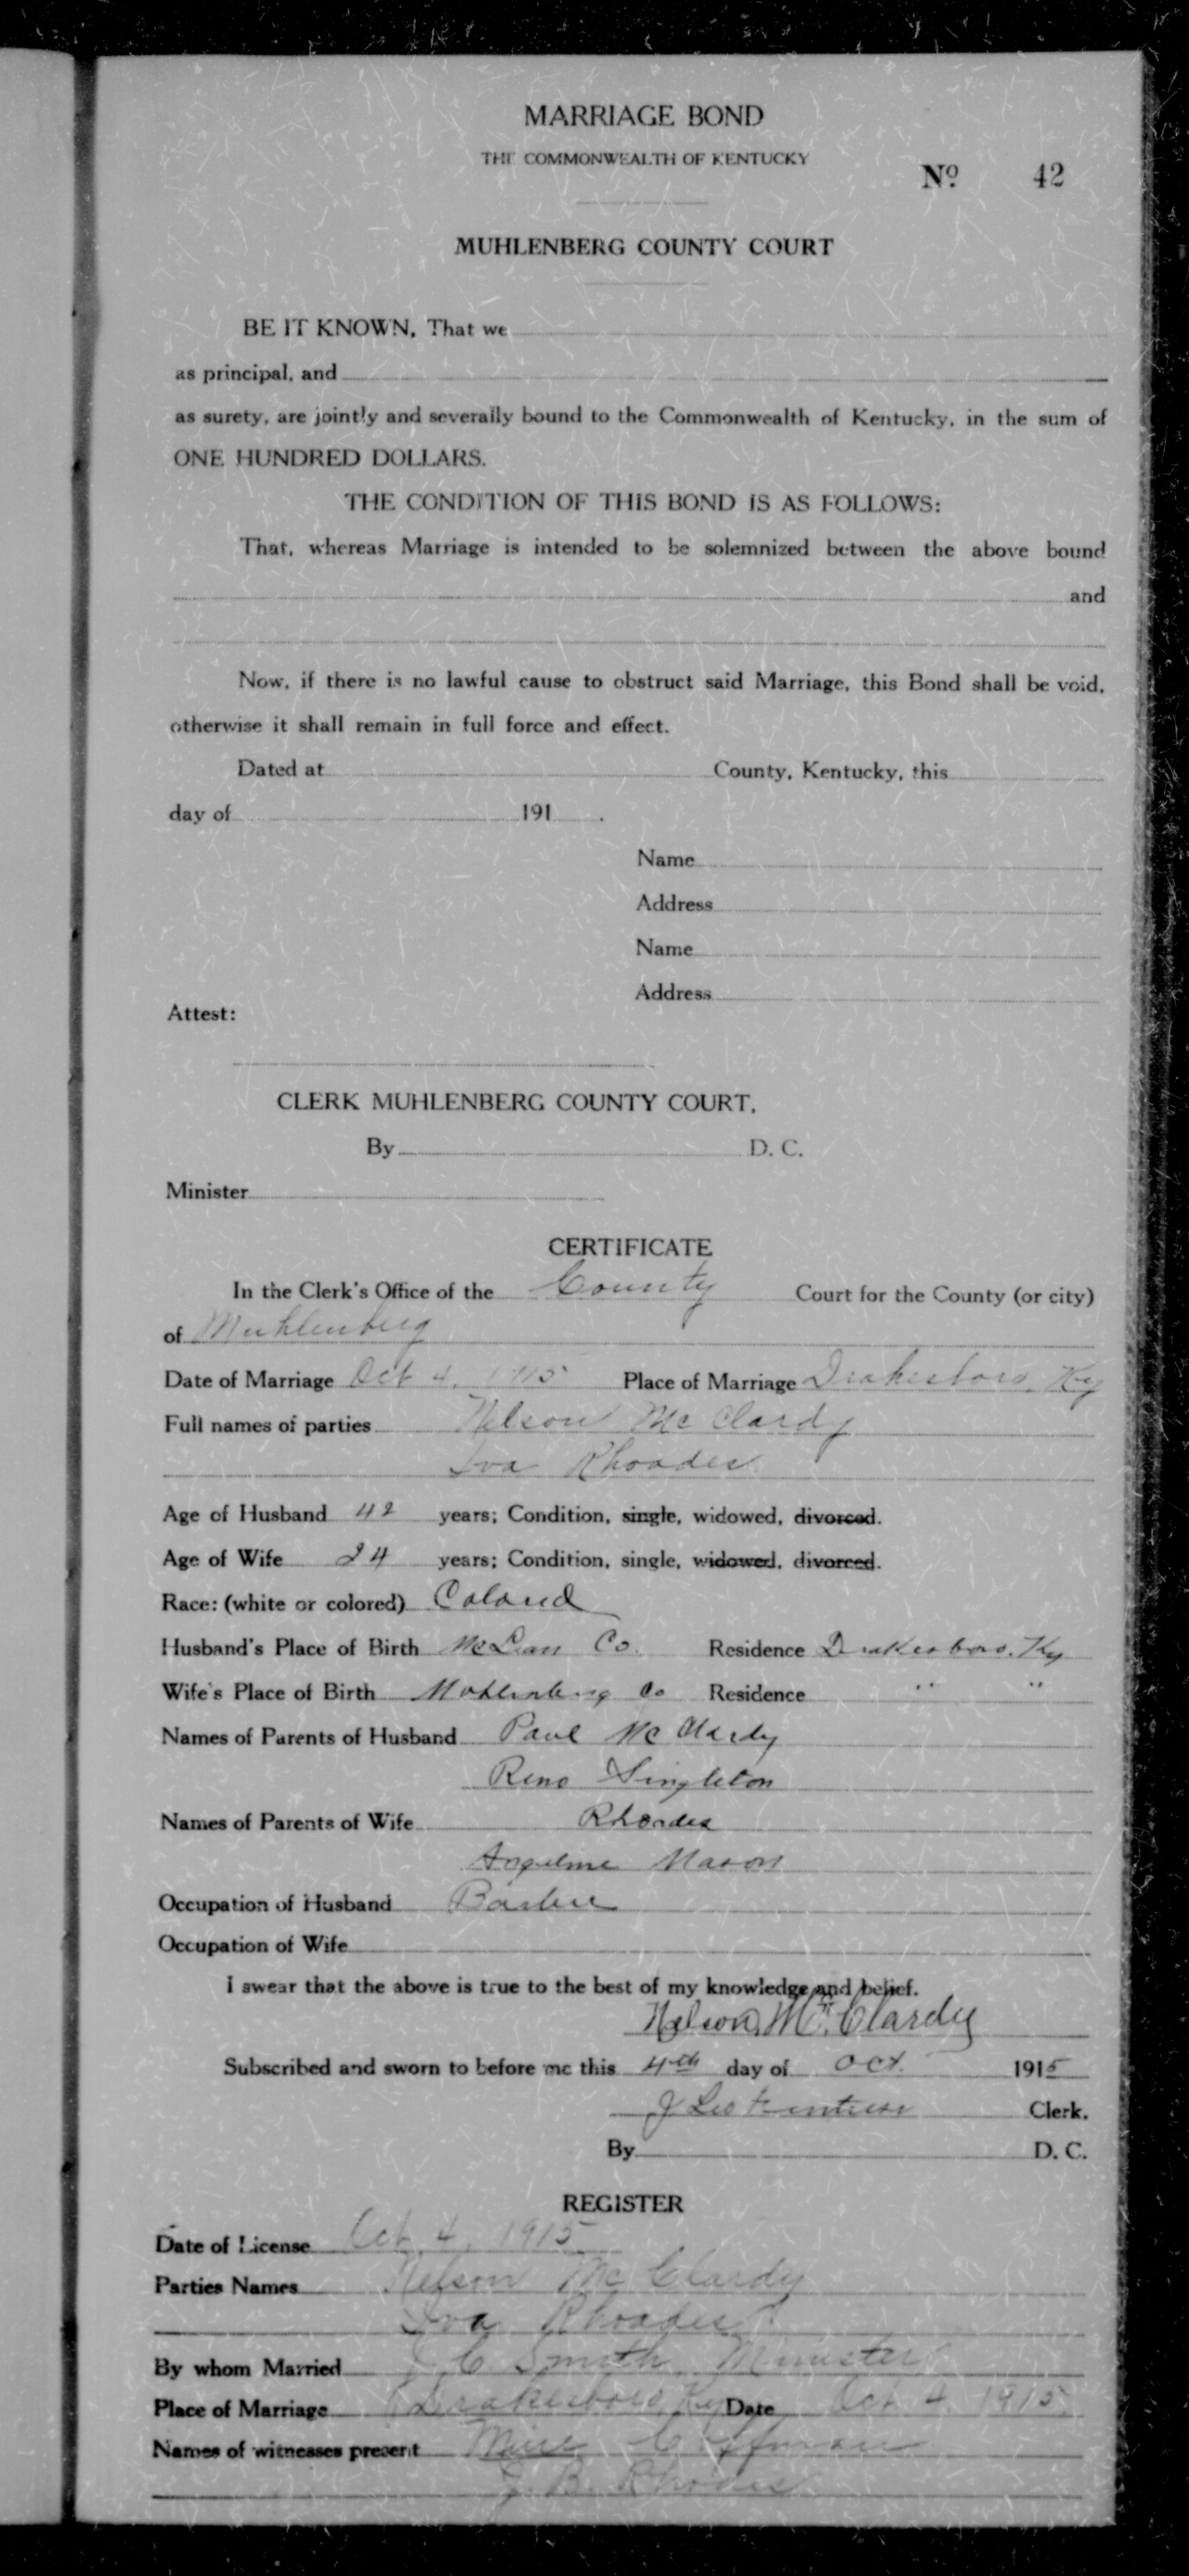 MARRIAGE BOND
THE COMMONWEALTH OF KENTUCKY
No. 42
MUHLENBERG COUNTY COURT
BE IT KNOWN, That we
as principal, and
as surety, are jointly and severally bound to the Commonwealth of Kentucky, in the sum of
ONE HUNDRED DOLLARS.
THE CONDITION OF THIS BOND IS AS FOLLOWS:
That, whereas Marriage is intended to be solemnized between the above bound
and
Now, if there is no lawful cause to obstruct said Marriage, this Bond shall be void,
otherwise it shall remain in full force and effect.
Dated at County, Kentucky, this
day of 191 .
Name
Address
Name
Address
Attest:
CLERK MUHLENBERG COUNTY COURT.
By D. C.
Minister
CERTIFICATE
In the Clerk's Office of the County Court for the County (or city)
of Muhlenberg
Date of Marriage Oct 4, 1915 Place of Marriage Drakesboro, Ky
Full names of parties Nelson McClardy
Iva Rhoades
Age of Husband 42 years; Condition, single, widowed, divorced.
Age of Wife 24 years; Condition, single, widowed, divorced.
Race: (white or colored) Colored
Husband's Place of Birth McLean Co. Residence Drakesboro, Ky
Wife's Place of Birth Muhlenberg Co Residence " "
Names of Parents of Husband Paul McClardy
Reno Singleton
Names of Parents of Wife Rhoades
Angeline Mason
Occupation of Husband Barber
Occupation of Wife
I swear that the above is true to the best of my knowledge and belief.
Nelson McClardy
Subscribed and sworn to before me this 4th day of Oct. 1915
J Leo Clerk.
By D. C.
REGISTER
Date of License Oct 4, 1915
Parties Names Nelson McClardy
Iva Rhoades
By whom Married J. C. Smith Minister
Place of Marriage Drakesboro, Ky Date Oct 4 1915
Names of witnesses present Coffman
J. B. Rhodes